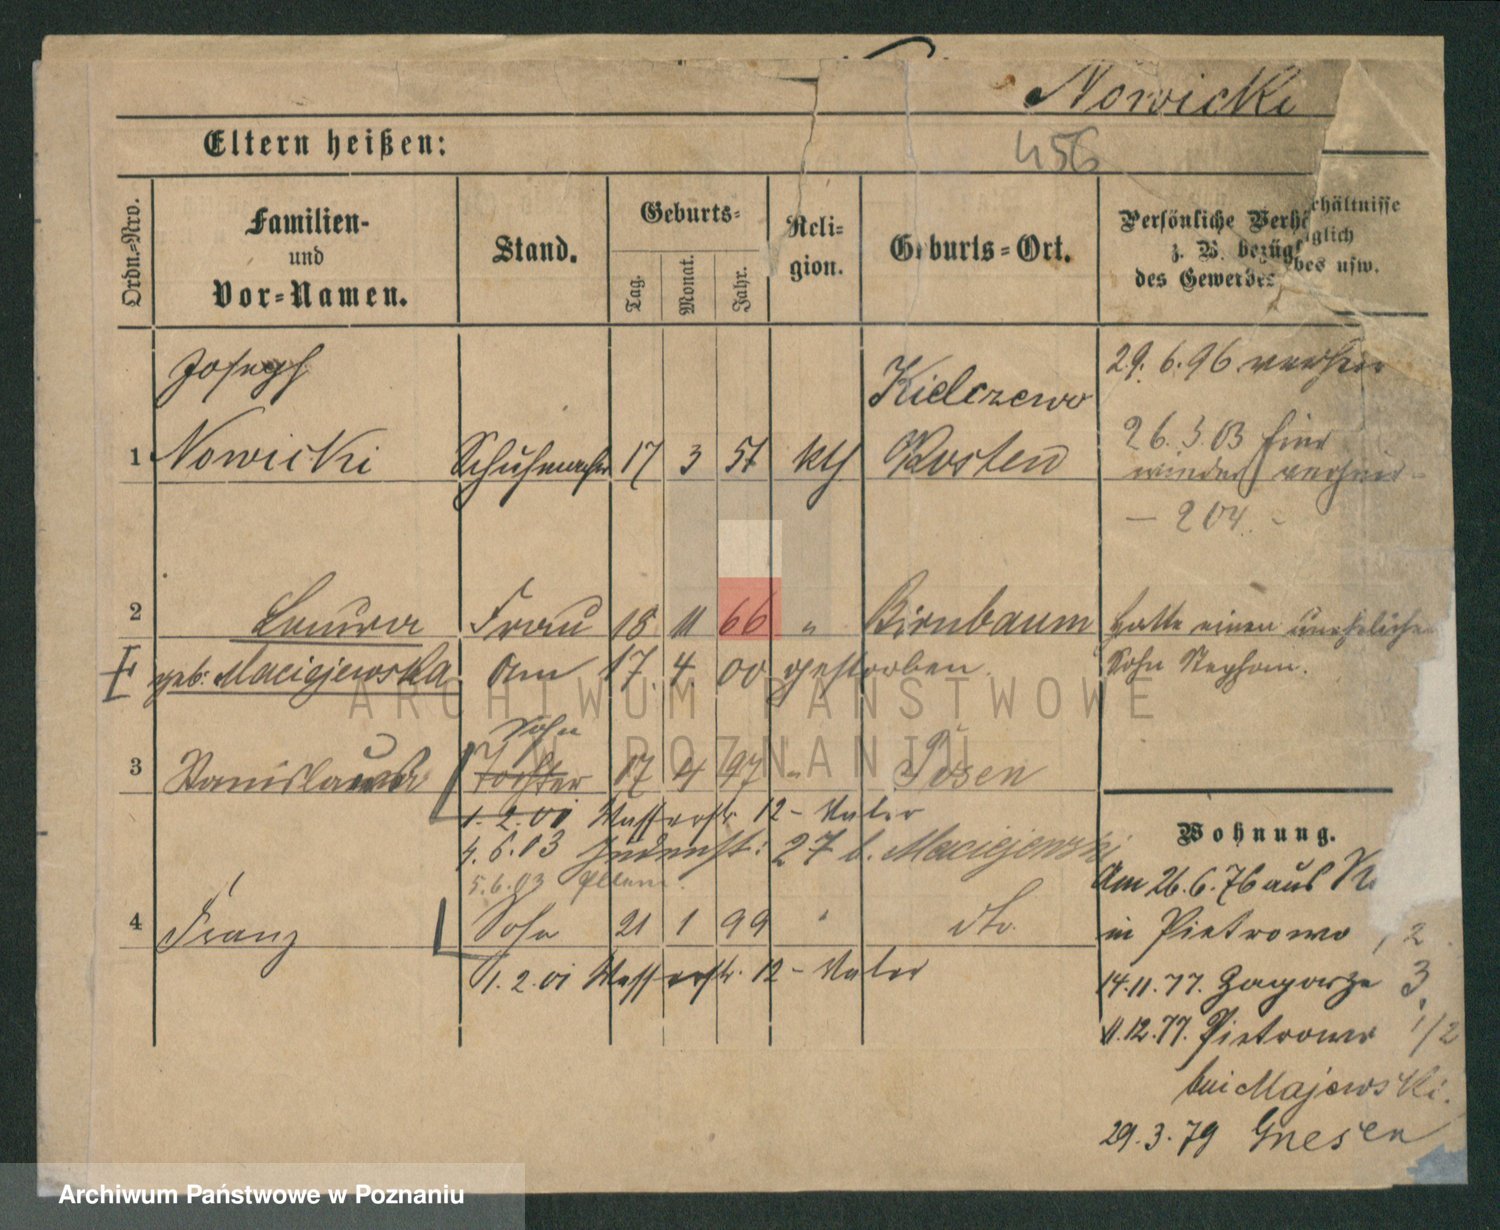 Nowicki
456
Eltern heißen:
Ordn.=Nro.
Familien-
und
Vor=Namen.
Stand.
Geburts=
Tag.
Monat.
Jahr.
Reli=
gion.
Geburts=Ort.
Persönliche Verhältnisse
z. B. bezüglich
des Gewerbes usw.
Joseph
Kielczewo
29. 6. 96
1 Nowicki Schuhmacher 17 3 57 kth Kosten
26. 3 03 hier
wieder verheir-
- 204. -
2 Laura Frau 18 11 66 „ Birnbaum hatte einen unehelichen
geb: Maciejewska am 17. 4 00 gestorben. Sohn Stephan.
Sohn
3 Stanislaus Tochter 17 4 97 „ Posen
1. 2. 01 Wasserstr. 12 - Vater
4. 6. 03 Judenstr: 27 b. Maciejewski
5. 6. 03
Wohnung.
Am 26. 6. 76 aus
4 Franz Sohn 21 1 99 " do.
in Pietrowo, 2
1. 2. 01 Wasserstr. 12 - Vater
14. 11. 77. Zagorze 3,
11. 12. 77. Pietrowo 1/2
bei Majewski.
29. 3. 79 Gnesen
ARCHIWUM PAŃSTWOWE
W POZNANIU
Archiwum Państwowe w Poznaniu